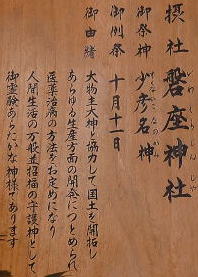 摂社 磐座神社
御祭神 少彦名神
御例祭 十月十一日
御由緒
大物主大神と協力して国土を開拓し
あらゆる生産方面の開発につとめられ
医薬治病の方法をお定めになり
人間生活の万般並招福の守護神として
御霊験あらたかな神様であります